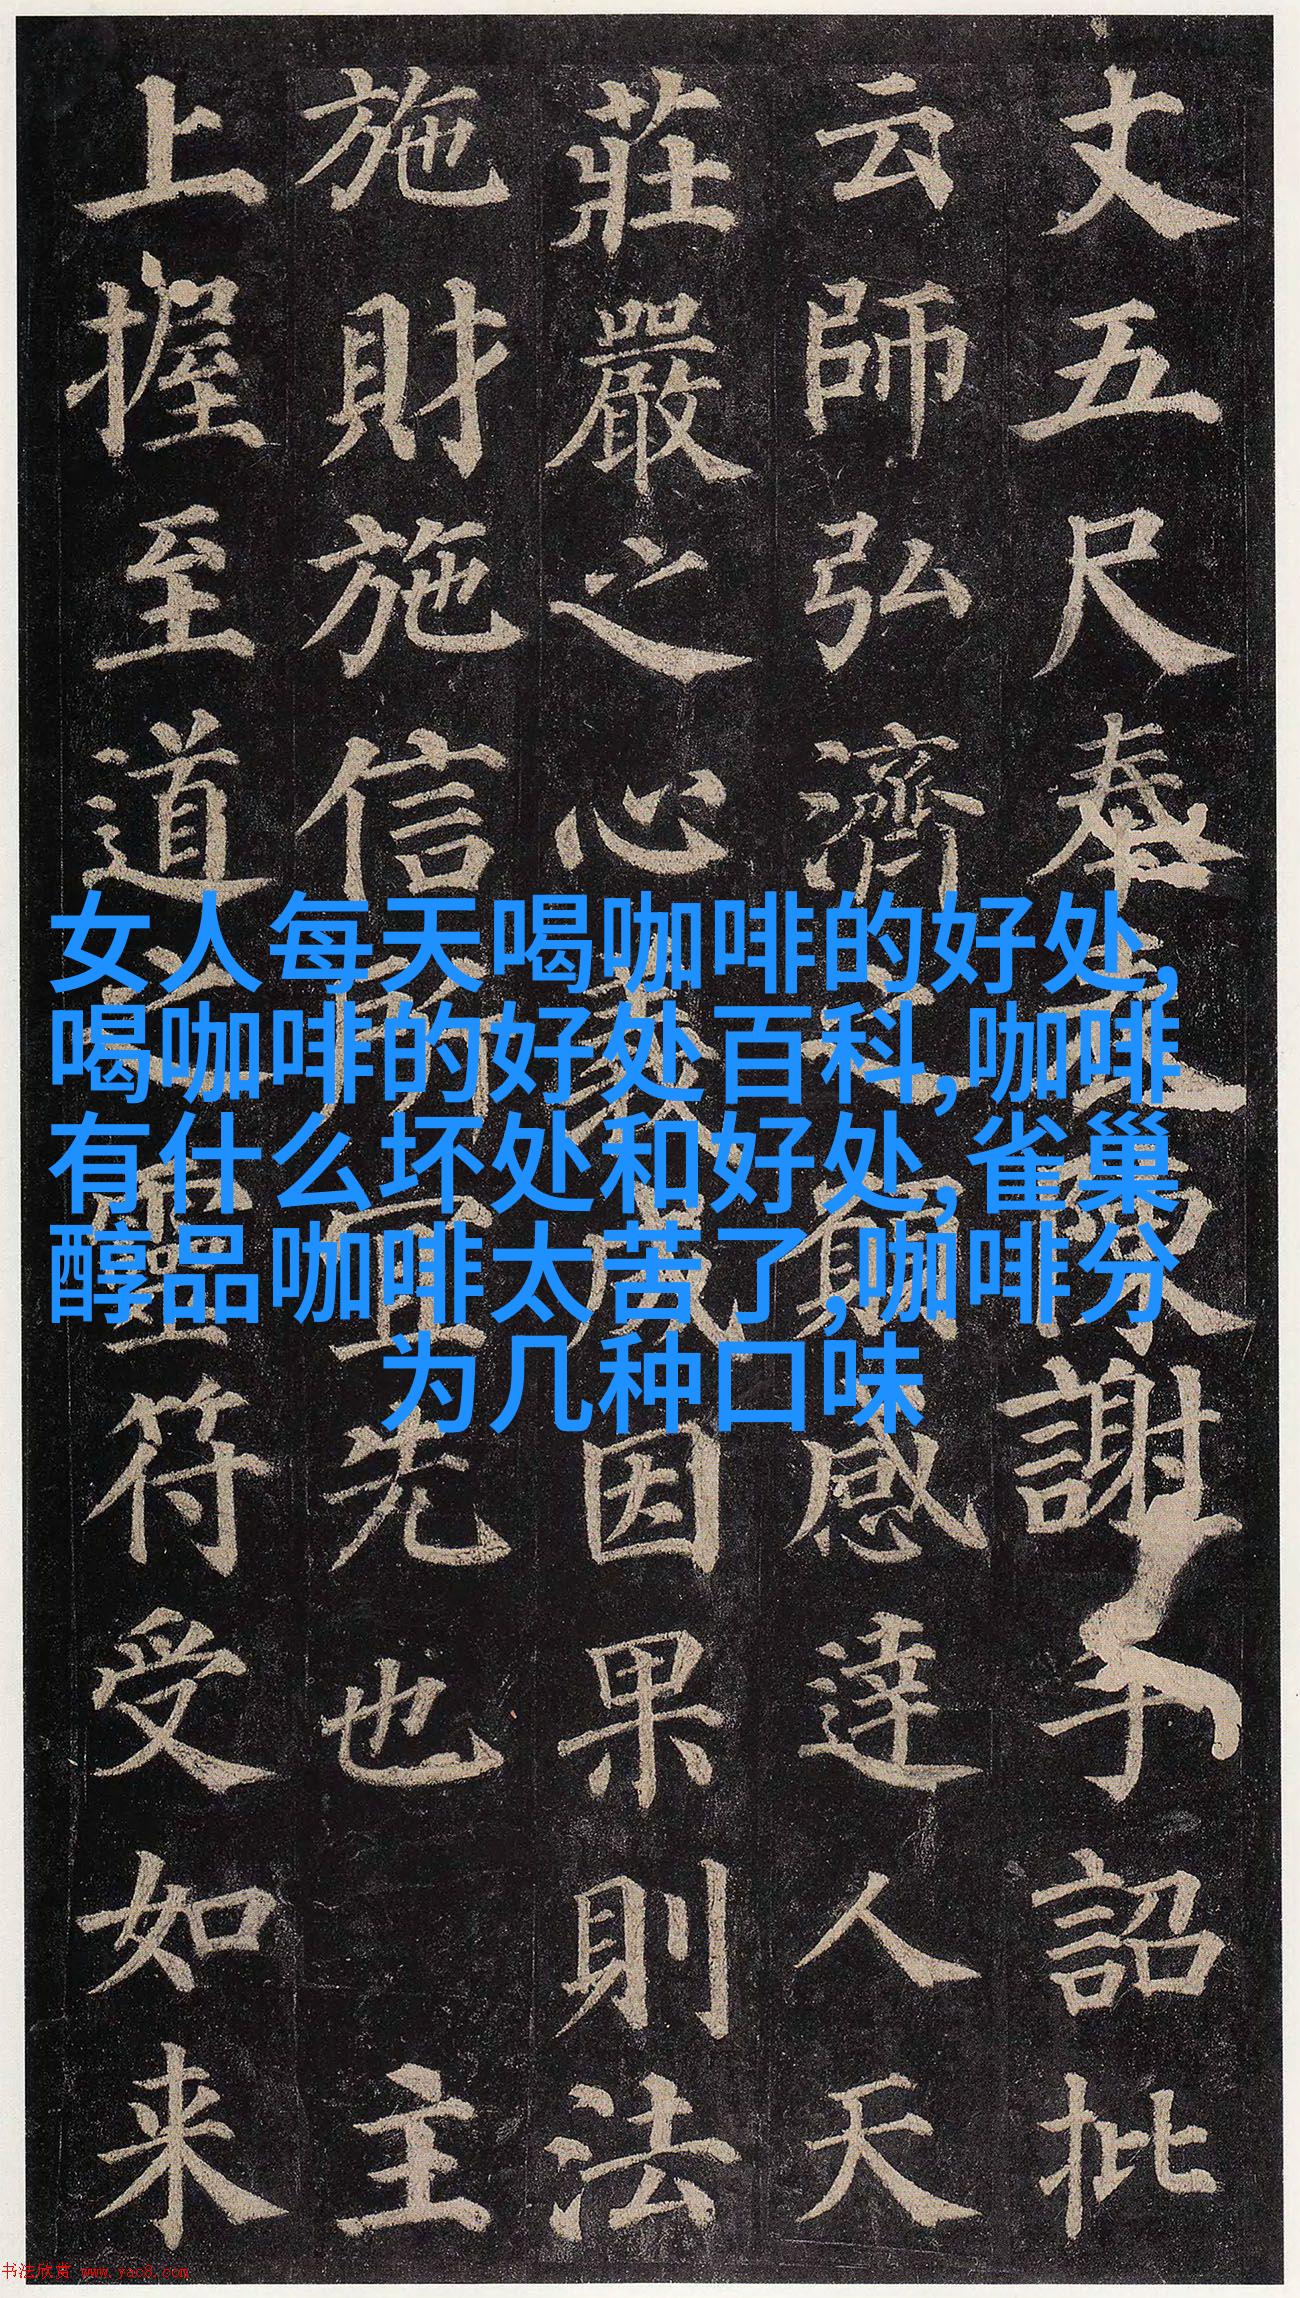 丈五尺奉陳謝手詔批
云師弘濟之願感達人天
莊嚴之心義成因果則法
施財施信所宜先也 主
上握至道之靈符受如来
女人每天喝咖啡的好处,
喝咖啡的好处百科,咖啡
有什么坏处和好处,雀巢
醇品咖啡太苦了,咖啡分
为几种口味
书法欣赏 www.yac8.com